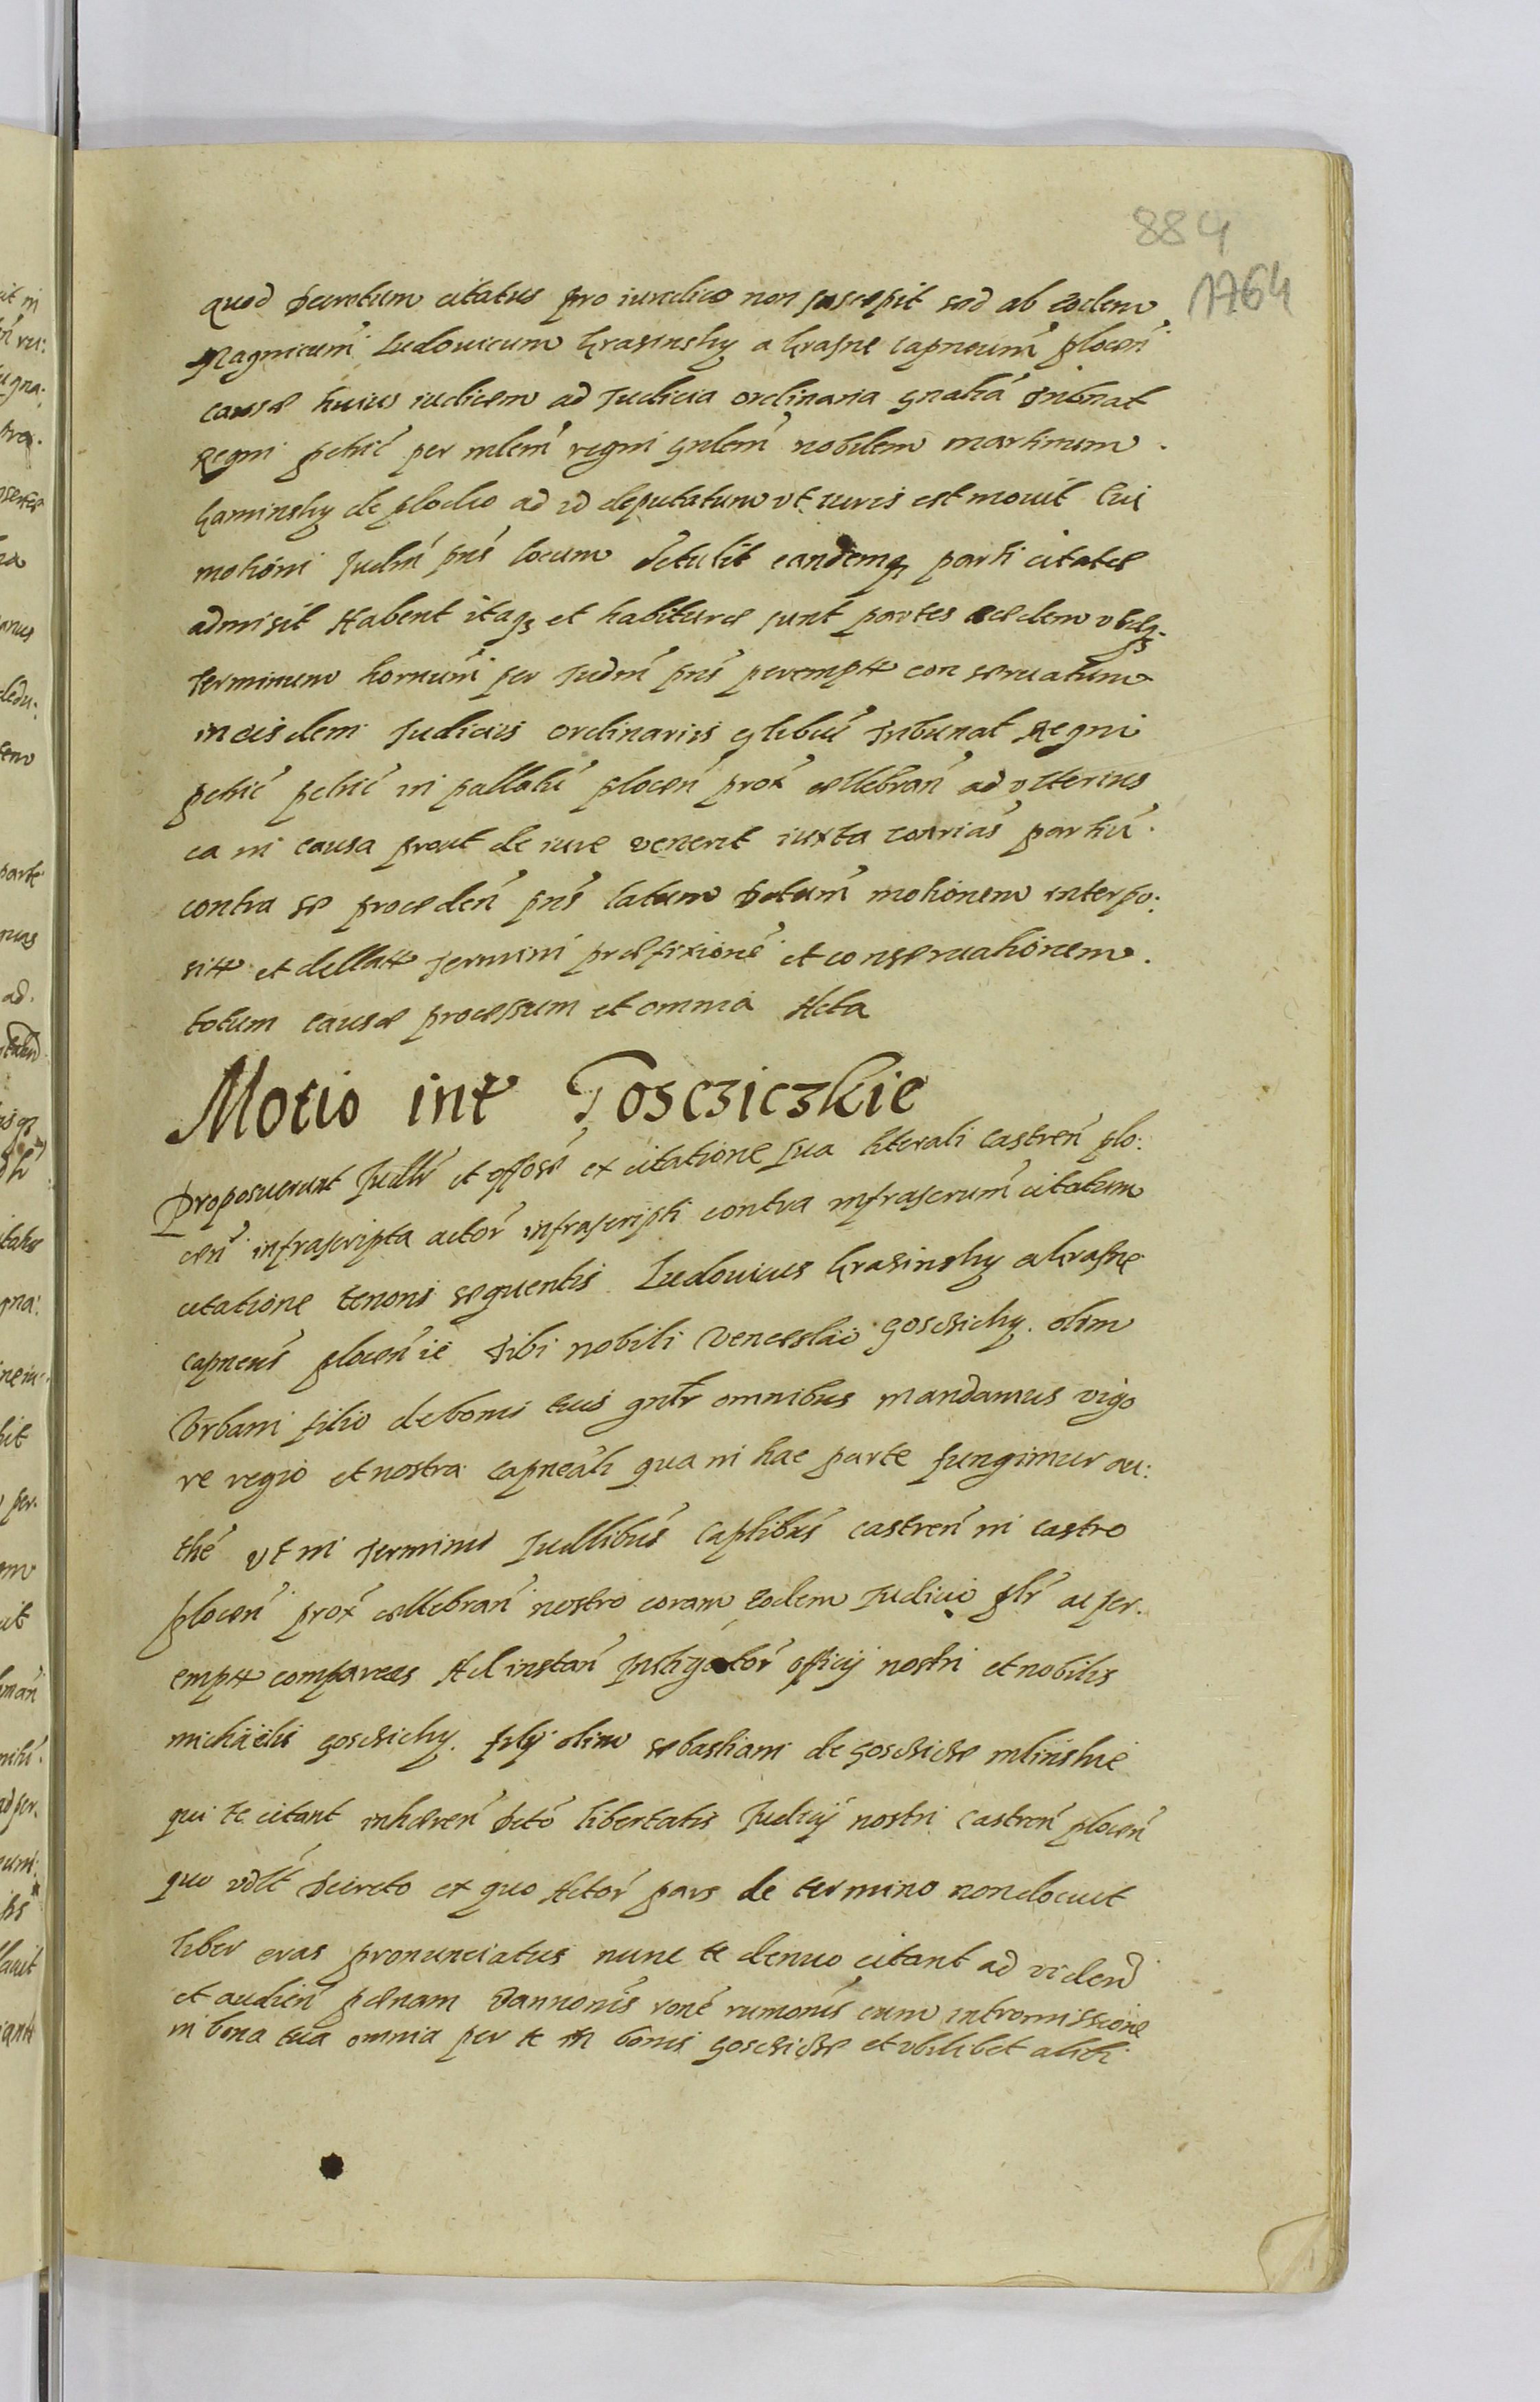 884
1764
quod decretum citatus pro iuridico non suscepit sed ab eodem
Magnicum̃ Ludouicum Krasinsky a Krasne capneum̃ plocen̄
causæ huius iudicem ad Judicia ordinaria gnalia tribunat
Regni petric̄ per mlem̄ regni gnlem̄ nobilem martinum
Kaminsky de plocko ad id deputatum vt iuris est mouit Cui
motioni Judm̄ pn̄s locum detulit eandemq3 parti citatæ
admisit Habent itaq3 et habituræ sunt partes eædem vbiq3
terminum hornum̄ per Judm̄ pn̄s perempt̄ conseruatum
in eisdem Judiciis ordinariis glibus̄ tribunat Regni
petric̄ petric̄ in pallatī plocen̄ prox̄ cellebran̄ ad vlterius
ea in causa prout de iure venerit iuxta contrias partiū
contra se proceden̄ pn̄s latum dctum̄ motionem interpo:
sit̄ et dellat̄ termini præfixionē et conseruationem
totum causæ processum et omnia Acta
Motio int̄ Gosczickie
Proposuerunt Judlr̄ et officiose ex citatione sua literali castren̄ plo:
cen̄ infrascripta actor̄ infrascripti contra infrascrum̄ citatum
citatione tenoris sequentis Ludouicus Krasinsky a Krasne
capneus̄ plocen̄ ie Tibi nobili Venceslao Gosczicky olim
Vrbani filio de bonis tuis gnlr omnibus mandamus vigo
re regio et nostra capneali qua in hac parte fungimur au:
thē vt in terminis Judlibus̄ Caplibus̄ castren̄ in castro
plocen̄ prox̄ cellebran̄ nostro coram eodem Judicio plr̄ ac per:
empt̄ compareas Ad instan̄ Instigator̄ officij nostri et nobilis
michaelis goscziczky filij olim sebastiani de gosczicze mlinskie
qui te citant inhæren̄ dcto libertatis Judicij nostri Castren̄ plocen̄
quo vdlt̄ decreto ex quo Actor̄ pars de termino non docuit
liber eras pronunciatus nunc te denuo citant ad viden̄d
et audien̄ pænam vannonis̄ ronē rumonis̄ cum intromissione
in bona tua omnia per te in bonis gosczicze et vbilibet alibi